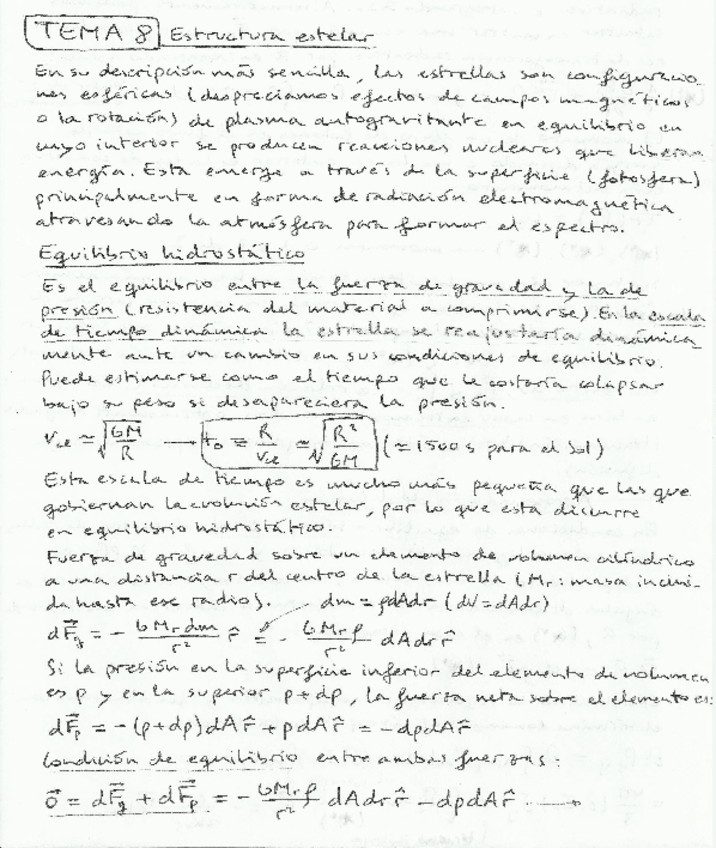 TEMA 8 Estructura estelar
En su descripción más sencilla, las estrellas son configuracio_
nes esféricas (despreciamos efectos de campos magnéticos
o la rotación) de plasma autogravitante en equilibrio en
cuyo interior se producen reacciones nucleares que liberan
energía. Esta emerge a través de la superficie (fotosfera)
principalmente en forma de radiación electromagnética
atravesando la atmósfera para formar el espectro.
Equilibrio hidrostático
Es el equilibrio entre la fuerza de gravedad y la de
presión (resistencia del material a comprimirse). En la escala
de tiempo dinámica la estrella se reajustaría dinámica_
mente ante un cambio en sus condiciones de equilibrio.
Puede estimarse como el tiempo que le costaría colapsar
bajo su peso si desapareciera la presión.
v_ce ≃ √(GM/R) → t_D = R/v_ce ≃ √(R³/GM) (≃ 1500 s para el Sol)
Esta escala de tiempo es mucho más pequeña que las que
gobiernan la evolución estelar, por lo que esta discurre
en equilibrio hidrostático.
Fuerza de gravedad sobre un elemento de volumen cilíndrico
a una distancia r del centro de la estrella (Mr: masa inclui_
da hasta ese radio). dm = ρdAdr (dV = dAdr)
dF⃗_g = - (GMr dm/r²) r̂ = - (GMr ρ/r²) dAdr r̂
Si la presión en la superficie inferior del elemento de volumen
es p y en la superior p+dp, la fuerza neta sobre el elemento es:
dF⃗_p = -(p+dp)dA r̂ + pdA r̂ = -dpdA r̂
Condición de equilibrio entre ambas fuerzas:
0⃗ = dF⃗_g + dF⃗_p = - (GMr ρ/r²) dAdr r̂ - dpdA r̂ →